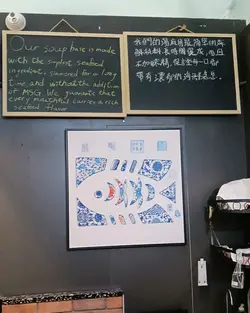 Our soup base is made
with the simplest seafood
ingredient, simmered for a long
time, and without the addition
of MSG. We guarantee that
every mouthful carries a rich
seafood flavor
我们的汤底是最简单的海
鲜材料长时间熬成，而且
不加味精，保证每一口都
带有浓郁的海味